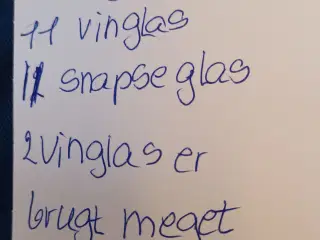 11 vinglas
12 snapseglas
2 vinglas er
brugt meget